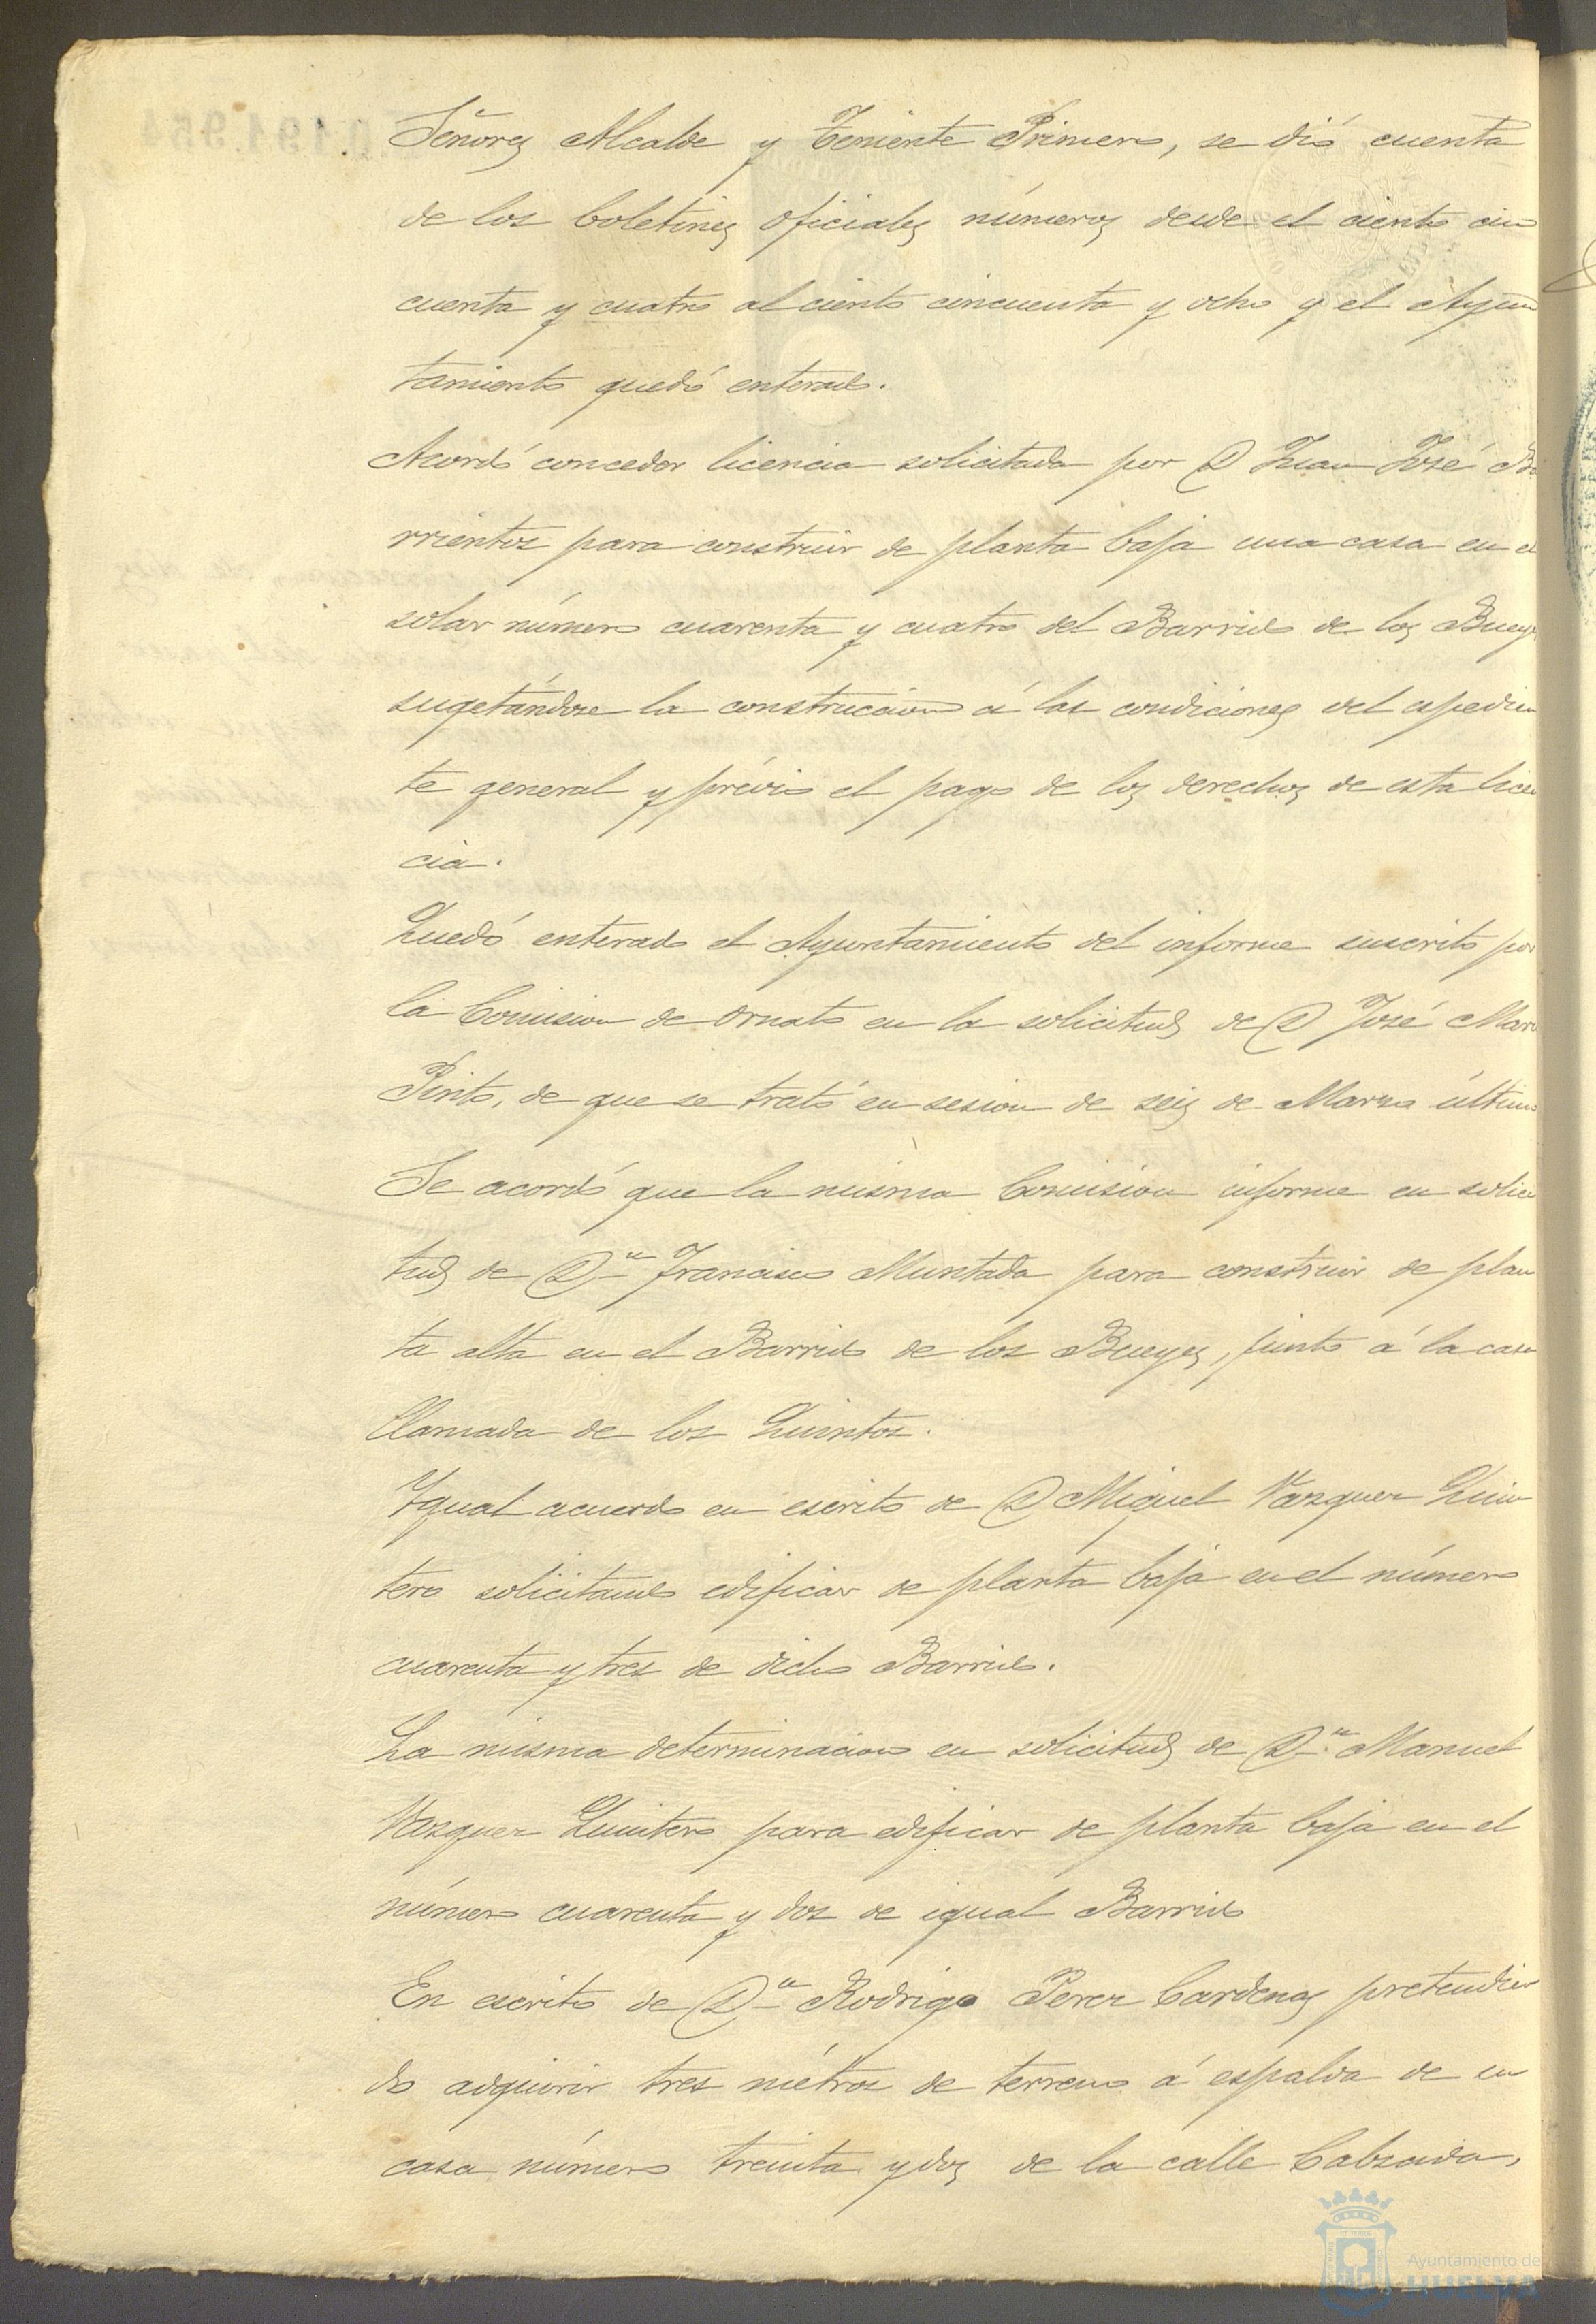 Señores Alcalde y Teniente Primero, se dió cuenta
de los boletines oficiales números desde el ciento cin
cuenta y cuatro al ciento cincuenta y ocho y el Ayun
tamiento quedó enterado.
Acordó conceder licencia solicitada por D Juan José Ba
rrientos para construir de planta baja una casa en el
solar número cuarenta y cuatro del Barrio de los Bueyes
sugetándose la construccion á las condiciones del espedien
te general y prévio el pago de los derechos de esta licen
cia.
Quedó enterado el Ayuntamiento del informe suscrito por
la Comision de ornato en la solicitud de D José Mar
Pinto, de que se trató en sesion de seis de Marzo último
Se acordó que la misma Comision informe en solici
tud de Dn Francisco Muntada para construir de plan
ta alta en el Barrio de los Bueyes, junto á la casa
llamada de los Quintos.
Ygual acuerdo en escrito de D Miguel Vazquez Quin
tero solicitando edificar de planta baja en el número
cuarenta y tres de dicho Barrio.
La misma determinacion en solicitud de Dn Manuel
Vazquez Quintero para edificar de planta baja en el
número cuarenta y dos de igual Barrio
En escrito de Dn Rodrigo Perez Cardenas pretendien
do adquirir tres métros de terreno á espalda de su
casa número treinta y dos de la calle Calzada,
Ayuntamiento de
HUELVA